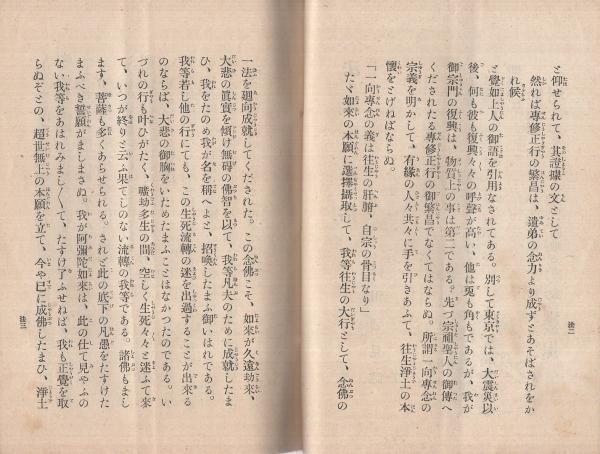 後二
と仰せられて、其證據の文として
然れば專修正行の繁昌は、遺弟の念力より成ずとあそばされをか
れ候
と覺如上人の御語を引用なされてある。別して東京では、大震災以
後、何も彼も復興々々の呼聲が高い、他は兎も角もであるが、我が
御宗門の復興は、物質上の事は第二である。先づ宗祖聖人の御傳へ
くだされたる專修正行の御繁昌でなくてはならぬ。所謂一向專念の
宗義を明かして、有緣の人々共々に手を引きあふて、往生淨土の本
懷をとげねばならぬ
「一向專念の義は往生の肝腑、自宗の骨目なり」
たゞ如來の本願に選擇攝取して、我等往生の大行として、念佛の
一法を廻向成就してくだされた。この念佛こそ、如來が久遠劫來、
大悲の眞實を傾け無碍の佛智を以て、我等凡夫のために成就したま
ひ、我をたのめ我が名を稱へよと、招喚したまふ御いはれである。
我等若し他の行にても、この生死流轉の迷を出過することが出來る
のならば、大悲の御胸をいためたまふことはなかつたのである。い
づれの行も叶ひがたく、曠劫多生の間、空しく生死々々と迷ふて來
て、いつが終りと云ふ果てしのない流轉の我等である。諸佛もまし
ます、菩薩も多くあらせられる。されど此の底下の凡愚をたすけた
まふべき誓願がましまさぬ。我が阿彌陀如來は、此の仕て見やふの
ない我等をあはれみまし〳〵て、たすけ了ふせねば、我も正覺を取
らぬぞとの、超世無上の本願を立て、今や已に成佛したまひ、淨土
後三